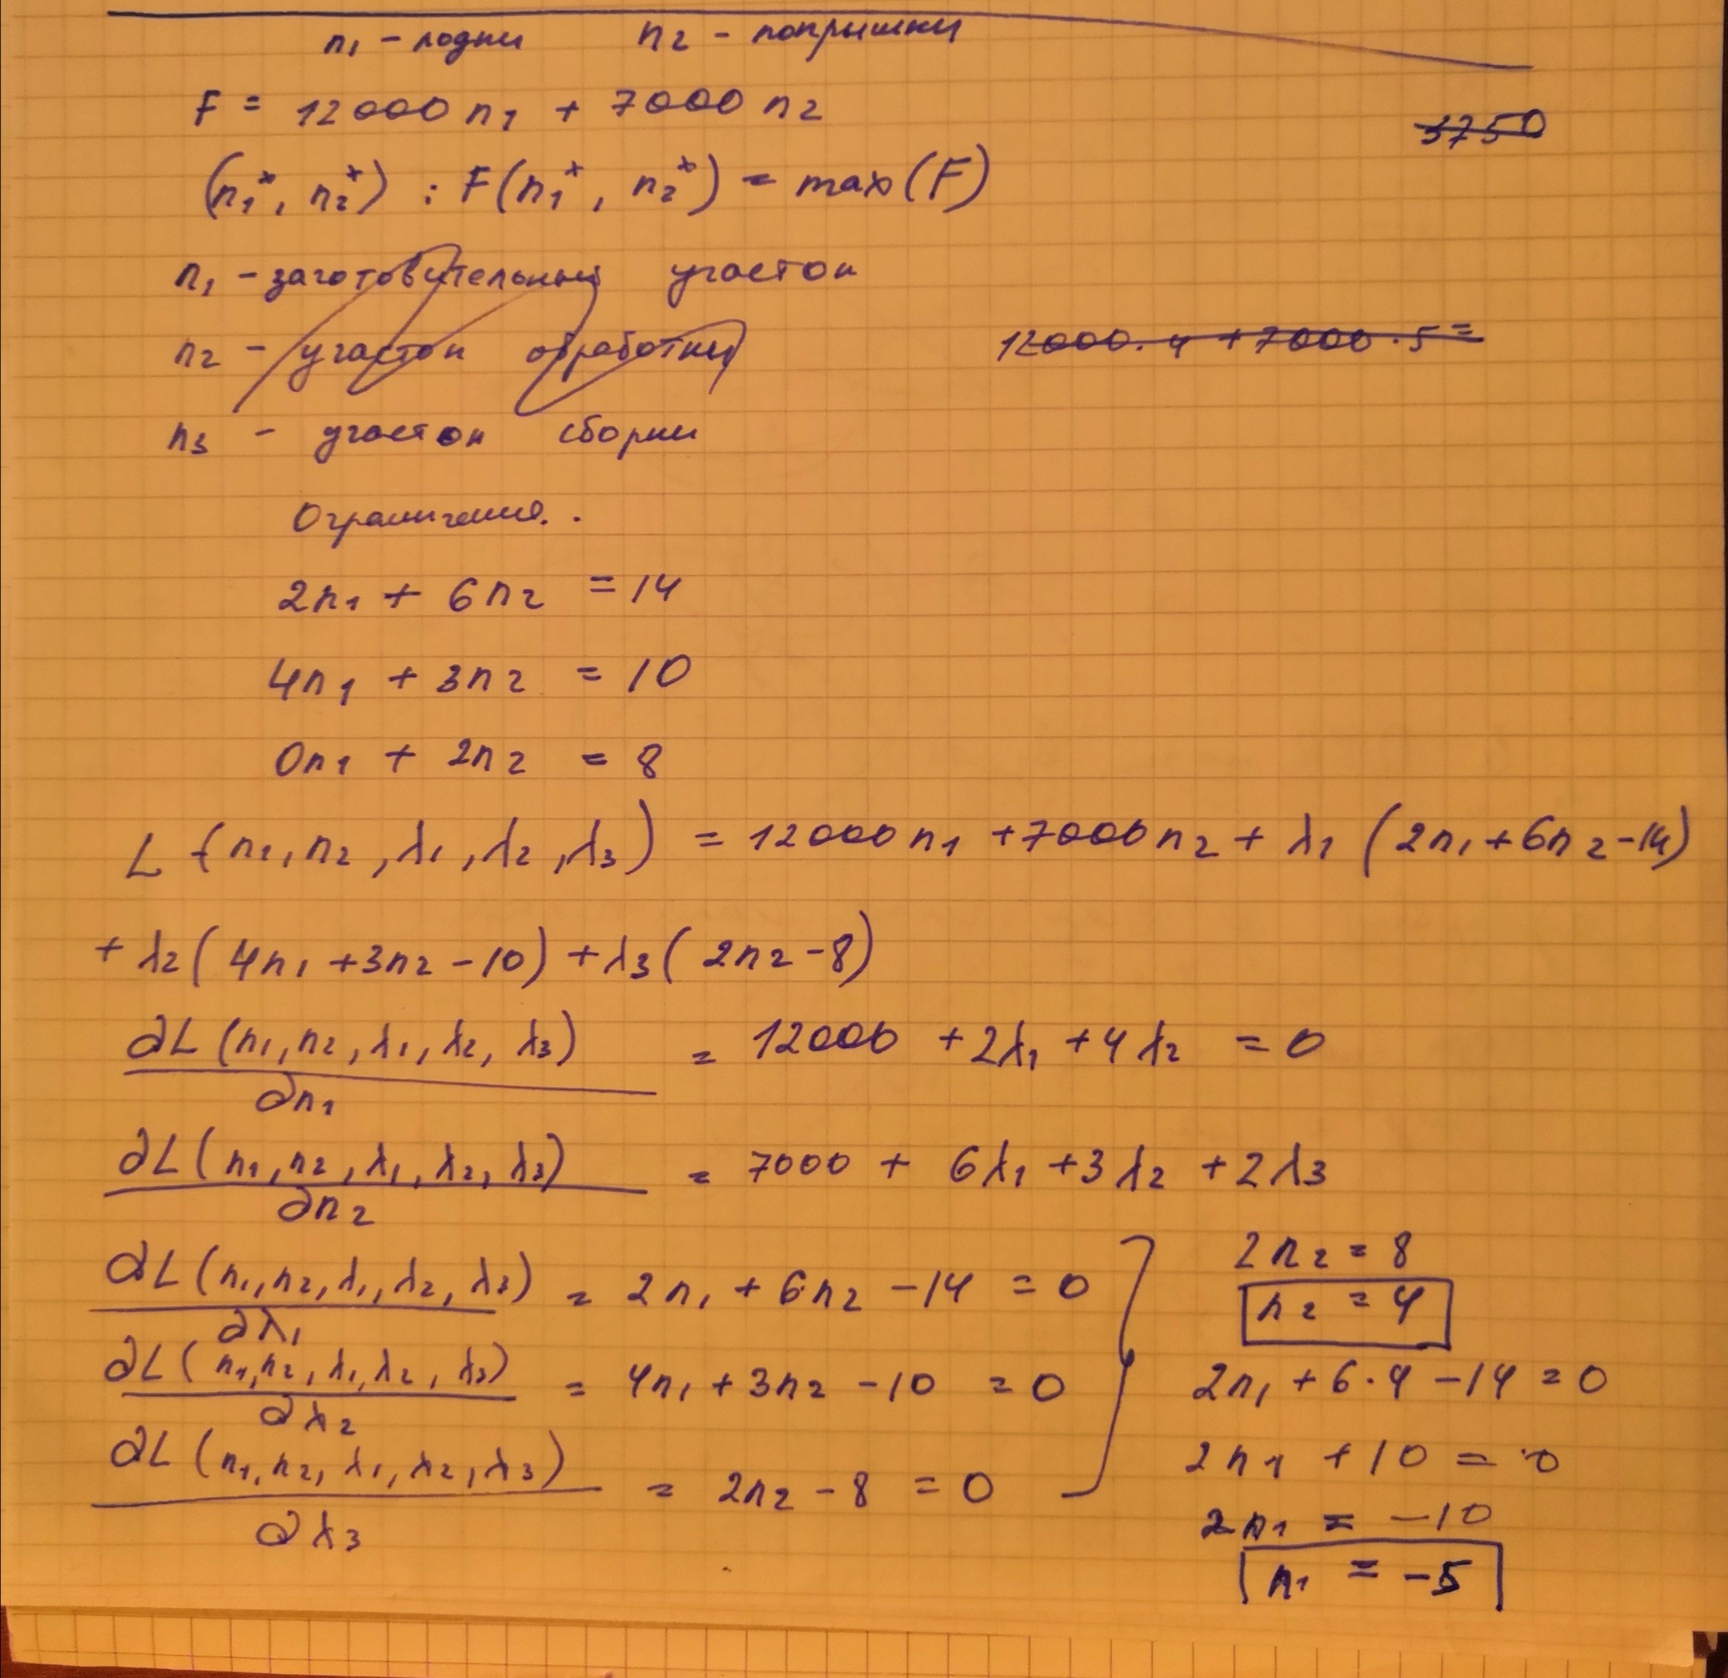 n₁ - лодки n₂ - покрышки
F = 12000 n₁ + 7000 n₂
3750
(n₁*, n₂*) : F(n₁*, n₂*) = max(F)
n₁ - заготовительный участок
n₂ - участок обработки
12000·4 + 7000·5 =
n₃ - участок сборки
Ограничения.
2n₁ + 6n₂ = 14
4n₁ + 3n₂ = 10
0n₁ + 2n₂ = 8
L (n₁, n₂, λ₁, λ₂, λ₃) = 12000n₁ + 7000n₂ + λ₁ (2n₁ + 6n₂ - 14)
+ λ₂ (4n₁ + 3n₂ - 10) + λ₃ (2n₂ - 8)
∂L (n₁, n₂, λ₁, λ₂, λ₃) / ∂n₁ = 12000 + 2λ₁ + 4λ₂ = 0
∂L (n₁, n₂, λ₁, λ₂, λ₃) / ∂n₂ = 7000 + 6λ₁ + 3λ₂ + 2λ₃
∂L (n₁, n₂, λ₁, λ₂, λ₃) / ∂λ₁ = 2n₁ + 6n₂ - 14 = 0
∂L (n₁, n₂, λ₁, λ₂, λ₃) / ∂λ₂ = 4n₁ + 3n₂ - 10 = 0
∂L (n₁, n₂, λ₁, λ₂, λ₃) / ∂λ₃ = 2n₂ - 8 = 0
2n₂ = 8
n₂ = 4
2n₁ + 6·4 - 14 = 0
2n₁ + 10 = 0
2n₁ = -10
n₁ = -5